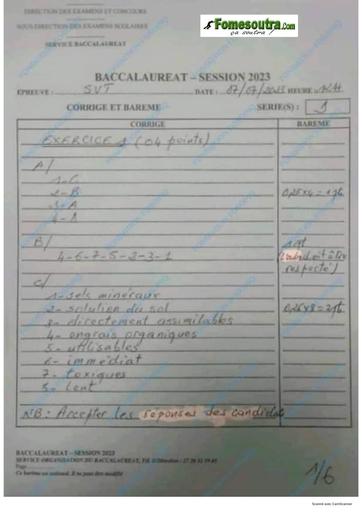 DIRECTION DES EXAMENS ET CONCOURS
SOUS-DIRECTION DES EXAMENS SCOLAIRES
SERVICE BACCALAUREAT
Fomesoutra.com
ça soutra !
BACCALAUREAT – SESSION 2023
EPREUVE : SVT DATE : 07/07/2023 HEURE :
CORRIGE ET BAREME SERIE(S) : 1
CORRIGE BAREME
EXERCICE 1 (04 points)
A/
1-C
2-B 0,25x4=1pt
3-A
4-A
B/ 1pt
4-6-7-5-2-3-1 (L'ordre doit être
respecté)
C/
1- sels minéraux
2- solution du sol 0,25x8=2pts
3- directement assimilables
4- engrais organiques
5- utilisables
6- immédiat
7- toxiques
8- lent
NB: Accepter les réponses des candidats
BACCALAUREAT – SESSION 2023
SERVICE ORGANISATION DU BACCALAUREAT,
Page
Ce barème est national. Il ne peut être modifié
1/6
Scanné avec CamScanner